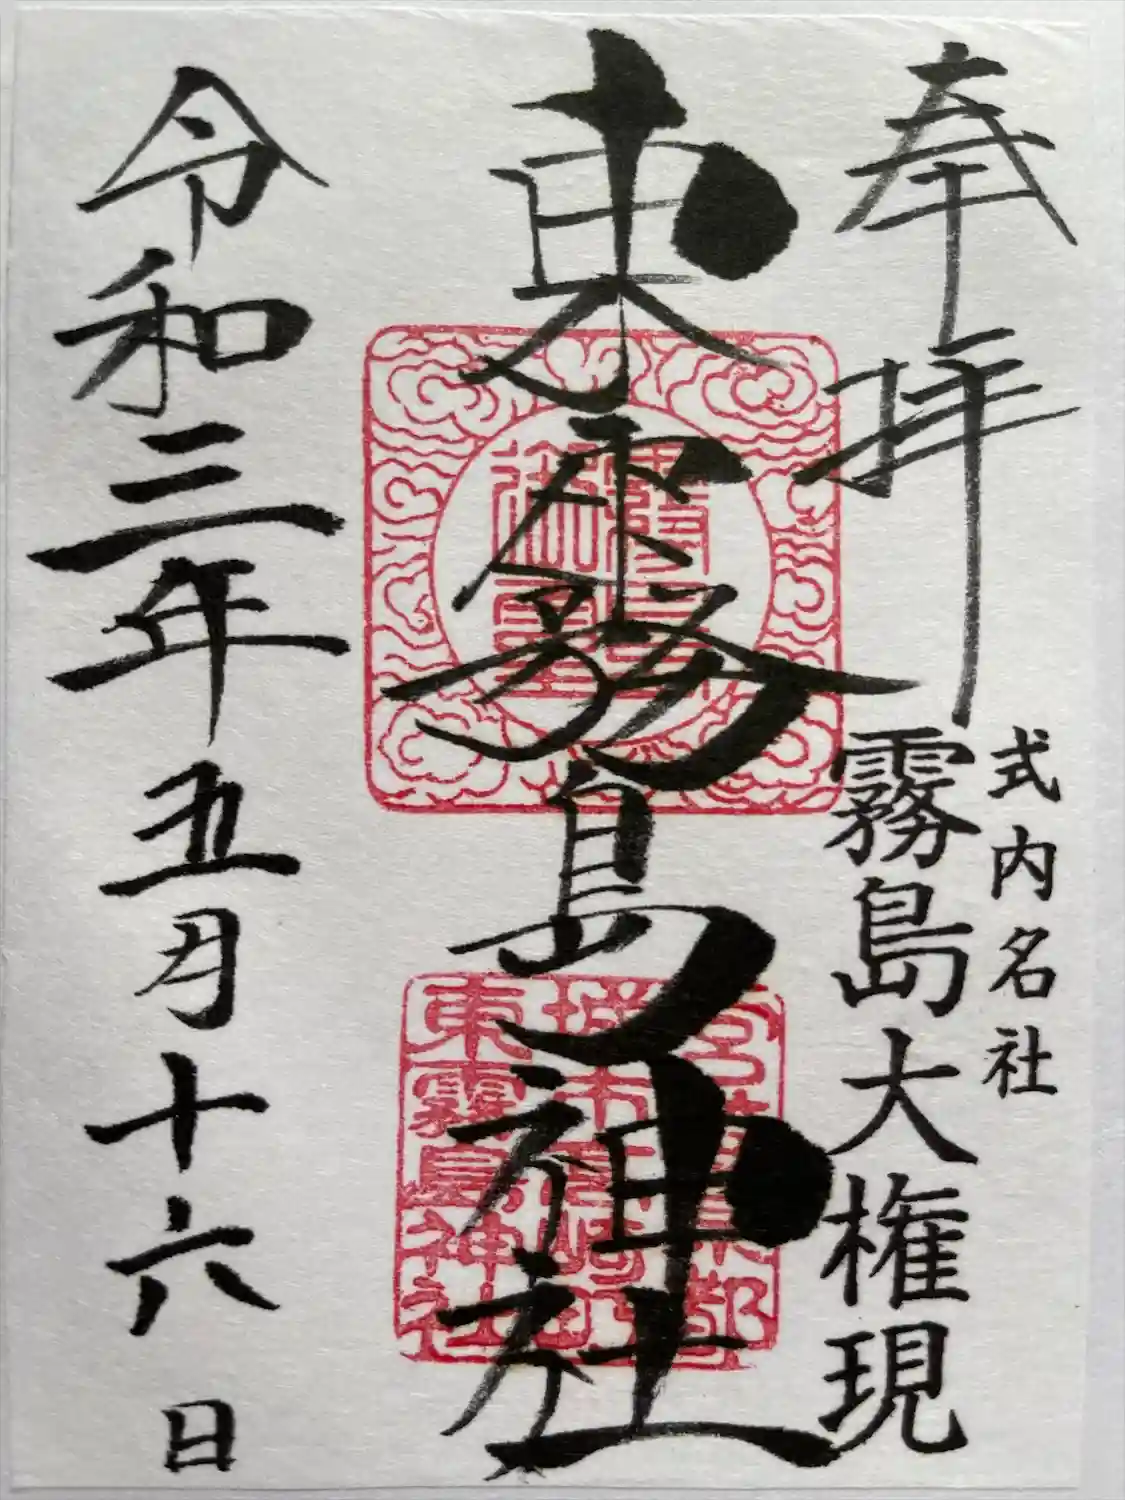 奉拝
式内名社
霧島大権現
東霧島神社
令和三年五月十六日
東霧島神社